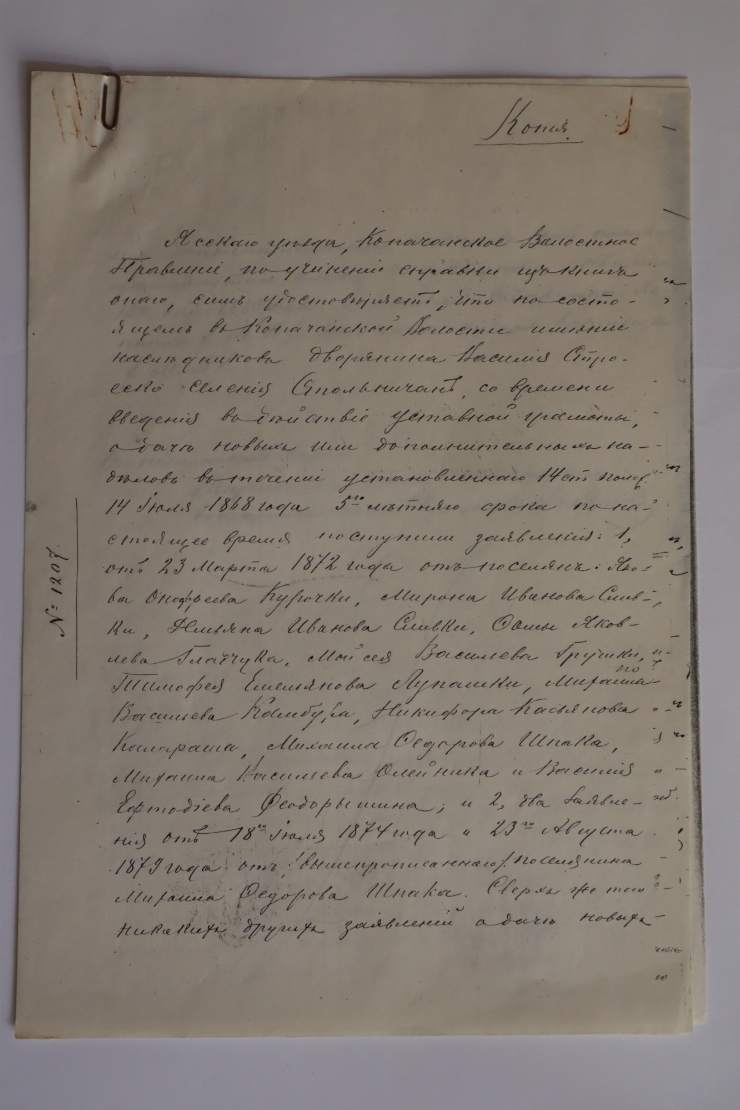 Копія
Ясскаго уѣзда, Копачанское Волостное
Правленіе, по учиненіи справки изъ книгъ
онаго, симъ удостовѣряетъ, что по состо-
ящемъ въ Копачанской Волости имѣніи
наслѣдниковъ дворянина Василія Стро-
еско селенія Стольничанъ, со времени
введенія въ дѣйствіе уставной грамоты,
о дачѣ новыхъ или дополнительныхъ на-
дѣловъ въ теченіи установленнаго 14 ст. полож.
14 Іюля 1868 года 5го лѣтняго срока по на-
стоящее время поступили заявленія: 1,
отъ 23 Марта 1872 года отъ поселянъ:
Онофрева Курочки, Мирона Иванова Слив-
ки, Ильяна Иванова Сливки, Фомы Яков-
лева Глайчука, Мойсея Василева
Тимофея Емельянова Лупашки, Михаила
Васильева Камбура, Никифора Касьянова
Калараша, Михаила Федорова Шпака,
Михаила Василева Олейника и Василія
Евтодіева Феодоришина; и 2, два заявле-
нія отъ 18го Іюля 1874 года и 23го Августа
1879 года отъ вышепрописаннаго поселянина
Михаила Федорова Шпака. Сверхъ же того
никакихъ другихъ заявленій о дачѣ новыхъ
№ 1207.